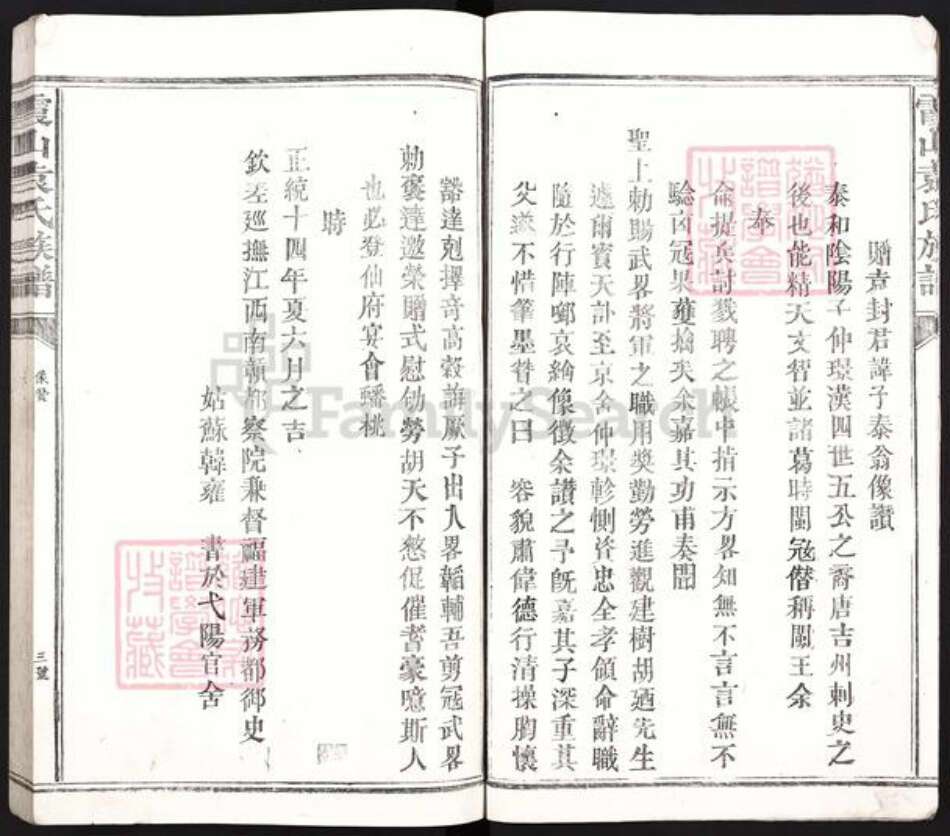 霞山袁氏族譜
贈袁封君諱子泰翁像讚
泰和陰陽子仲璟漢四世五公之裔唐吉州刺史之
後也能精天文智並諸葛時閩冦僭稱閩王余
奉
命提兵討戮聘之帳中指示方畧知無不言言無不
驗卤冠果獲擒矣余嘉其功甫奏聞
聖上勅賜武畧將軍之職用奬勤勞進觀建樹胡廼先生
遽爾賓天訃至京舍仲璟軫惻咨忠全孝領命辭職
隨於行陣啣哀繪像徵余讃之予旣嘉其子深重其
父遂不惜筆墨賛之曰 容貌肅偉德行清操胸懷
豁達剋擇竒高穀誨厥子出入畧韜輔吾剪冠武畧
勅褒達邀榮贈式慰劬勞胡天不憖促催耆豪噫斯人
也必登仙府宴會蟠桃
時
正統十四年夏六月之吉
欽差廵撫江西南贑都察院兼督福建軍務都御史
姑蘇韓雍 書於弋陽官舍
霞山袁氏族譜
像賛
三號
FamilySearch